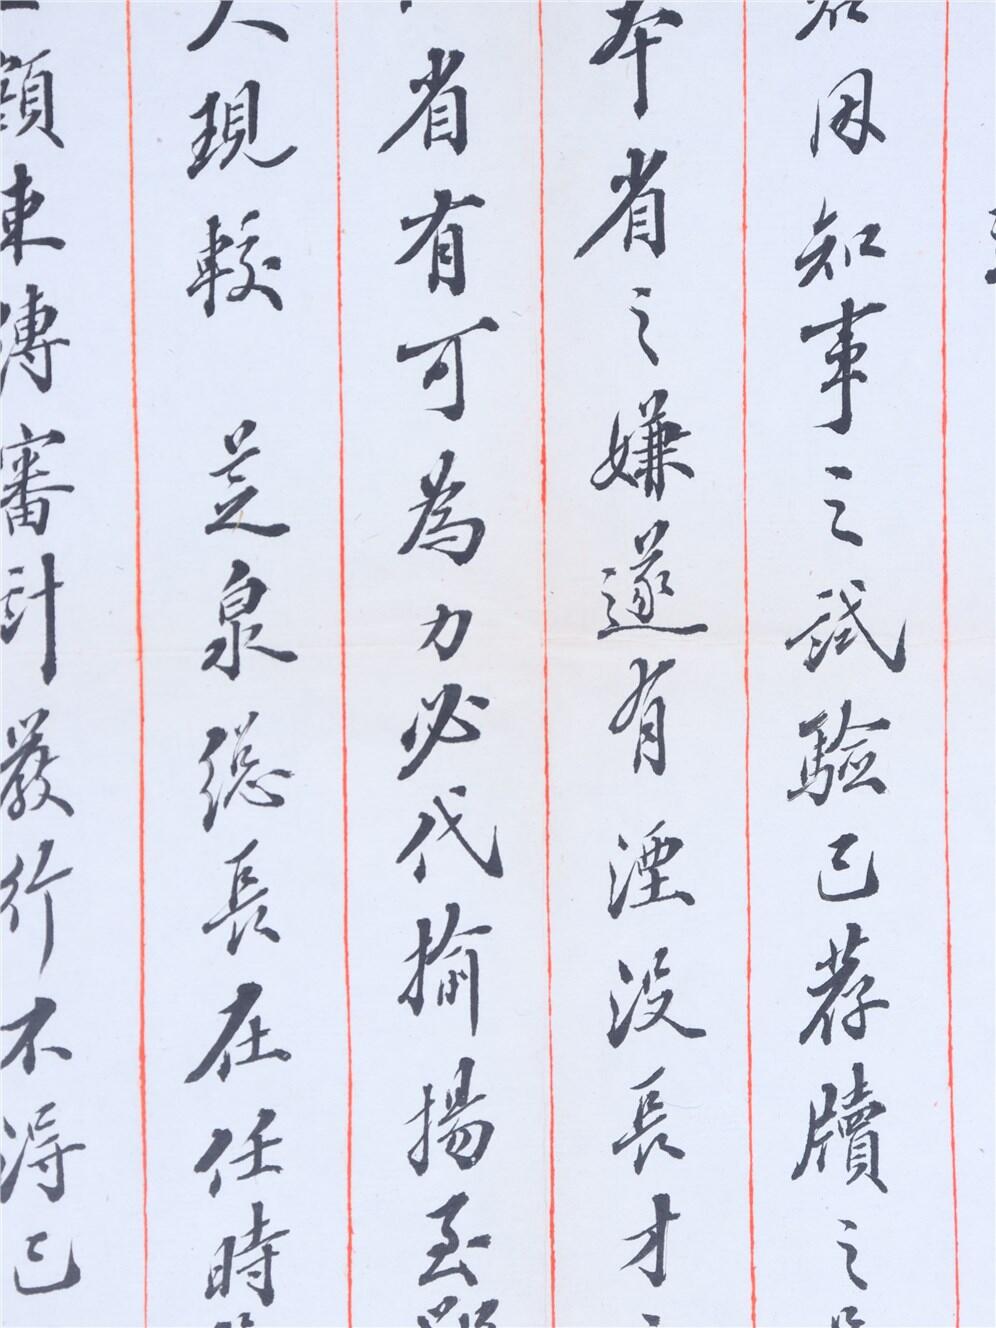 因知事之試驗已荐牘之
本省之嫌遂有湮没長才
省有可為力必代揄揚至
人現較 芝泉總長在任時
額東傳審計嚴行不得已